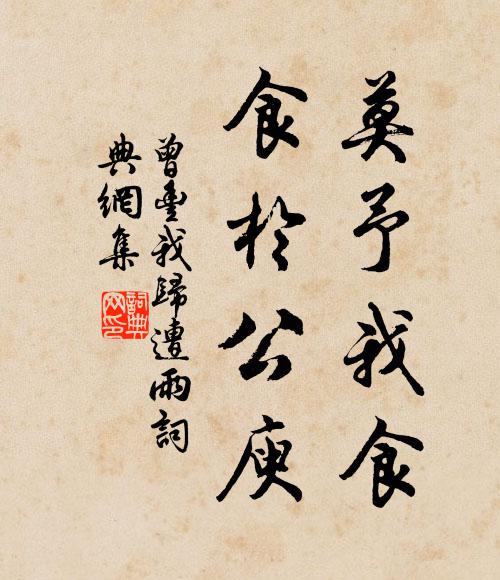 莫予我食
食於公庾
曾豊我歸遭雨詞
典網集
詞典
网印